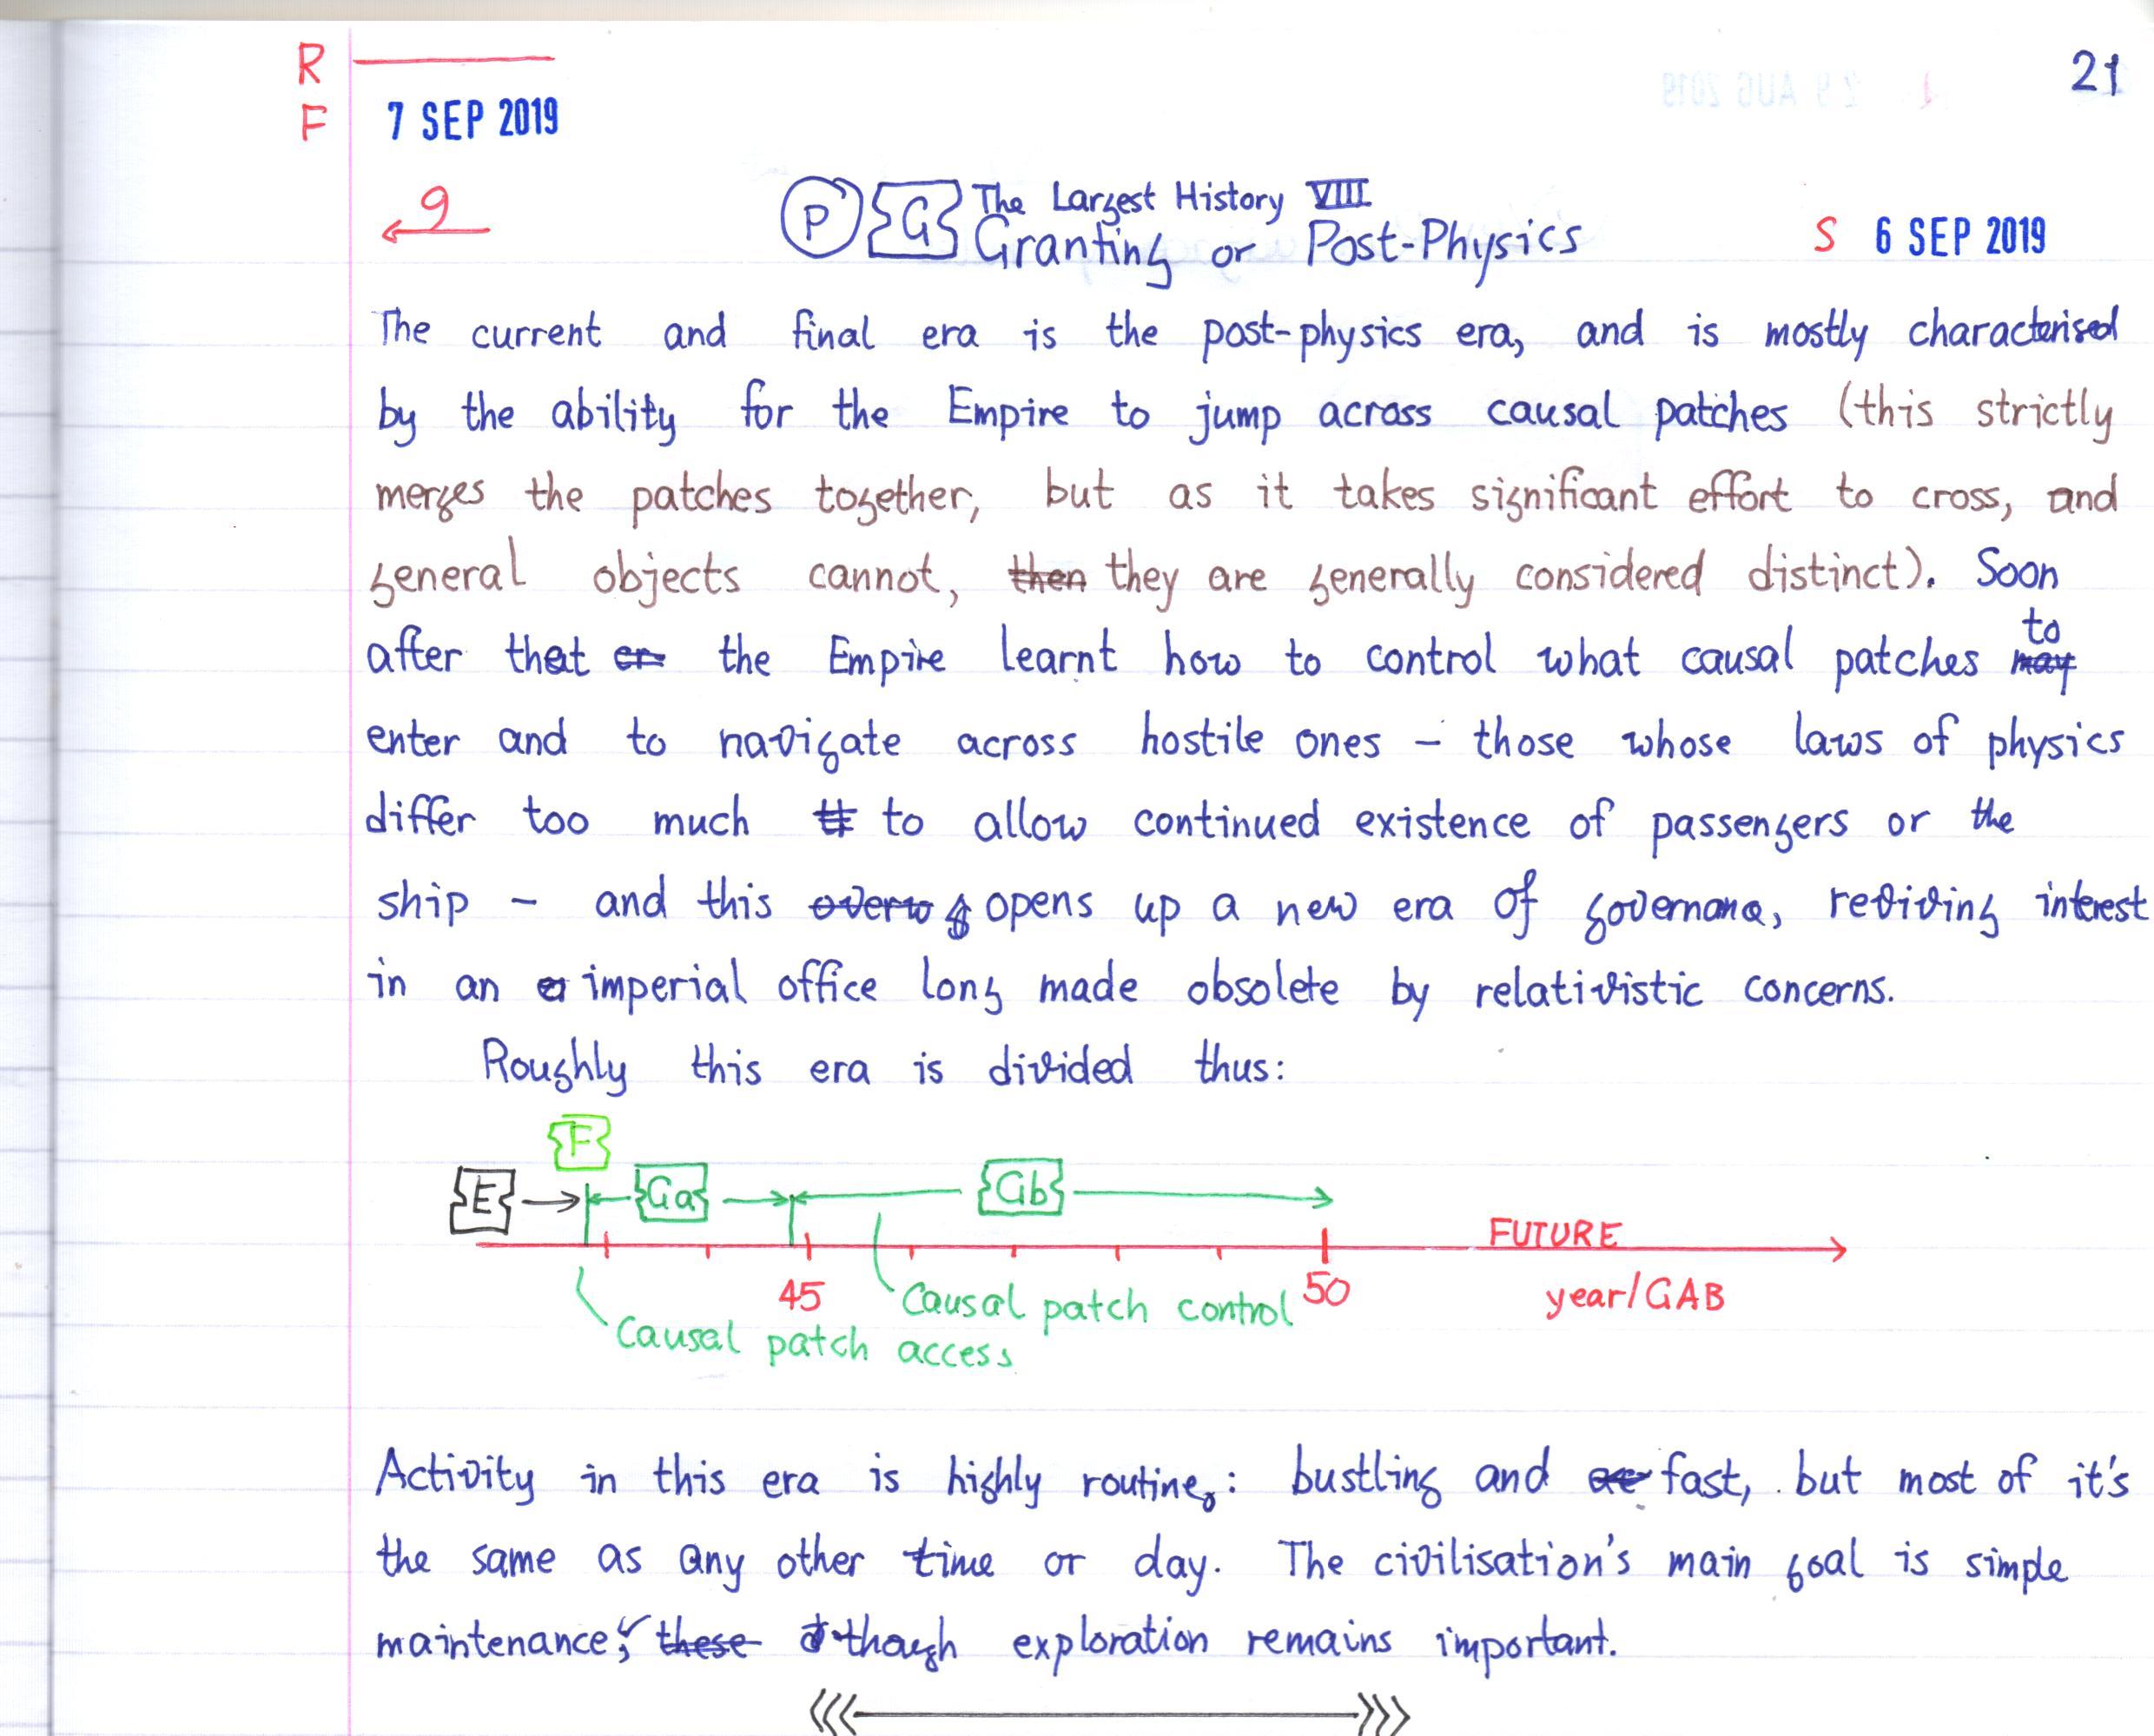 R
F 7 SEP 2019 21
9 P G The Largest History VIII
Granting or Post-Physics S 6 SEP 2019
The current and final era is the post-physics era, and is mostly characterised
by the ability for the Empire to jump across causal patches (this strictly
merges the patches together, but as it takes significant effort to cross, and
general objects cannot, then they are generally considered distinct). Soon
to
after that er the Empire learnt how to control what causal patches may
enter and to navigate across hostile ones – those whose laws of physics
differ too much to allow continued existence of passengers or the
ship – and this opens up a new era of governance, reviving interest
in an imperial office long made obsolete by relativistic concerns.
Roughly this era is divided thus:
F
E Ga Gb
FUTURE
45 Causal patch control 50 year/GAB
Causal patch access
Activity in this era is highly routine: bustling and fast, but most of it's
the same as any other time or day. The civilisation's main goal is simple
maintenance, these though exploration remains important.